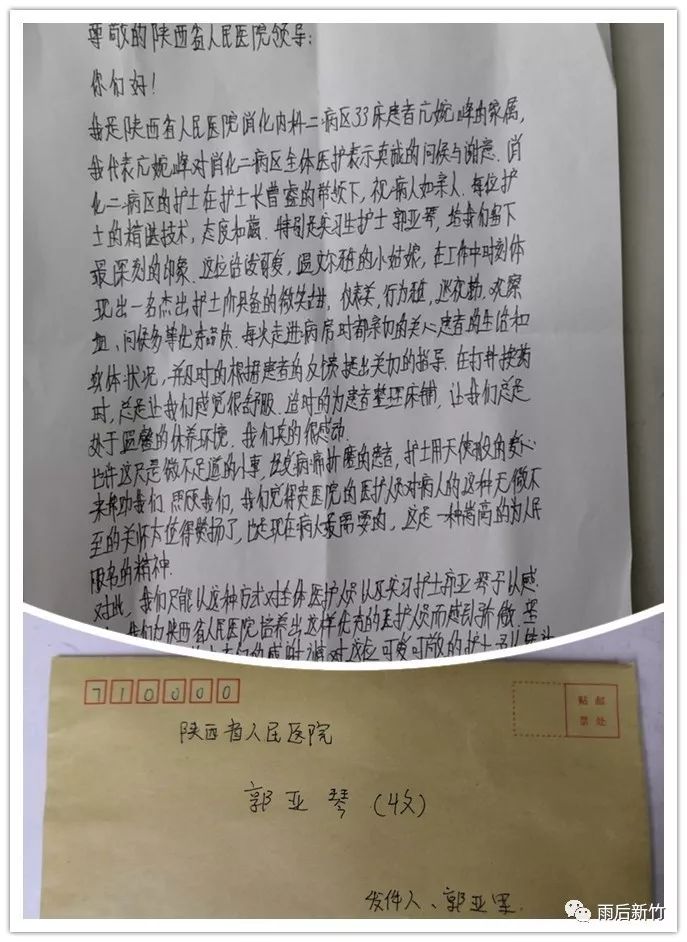 尊敬的陕西省人民医院领导:
你们好!
我是陕西省人民医院消化内科二病区33床患者亢婉峰的家属,
我代表亢婉峰对消化二病区全体医护表示真诚的问候与谢意.消
化二病区的护士在护士长曾睿的带领下,视病人如亲人.每位护
士的精湛技术,态度和蔼.特别是实习生护士郭亚琴,给我们留下
最深刻的印象.这位洽谈可爱,温文尔雅的小姑娘,在工作中时刻体
现出一名杰出护士所具备的微笑甜,仪表美,行为雅,巡视勤.观察
细、问候多等优秀品质.每次走进病房时都亲切的关心患者的生活和
身体状况,并及时的根据患者的反馈提出关切的指导.在打针换药
时,总是让我们感觉很舒服.适时的为患者整理床铺,让我们总是
处于温馨的休养环境.我们真的很感动.
也许这只是微不足道的小事,但受病痛折磨的患者,护士用天使般的爱心
来帮助我们.照顾我们,我们觉得贵医院的医护人员对病人的这种无微不
至的关怀太值得赞扬了,也是现在病人最需要的,这是一种崇高的为人民
服务的精神.
对此,我们只能以这种方式对全体医护人员以及实习护士郭亚琴予以感
我们为陕西省人民医院培养出这样优秀的医护人员而感到骄傲.
的感谢,请对这位可爱可敬的护士予以
710000
贴 邮
票 处
陕西省人民医院
郭亚琴(收)
发件人、郭亚
雨后新竹